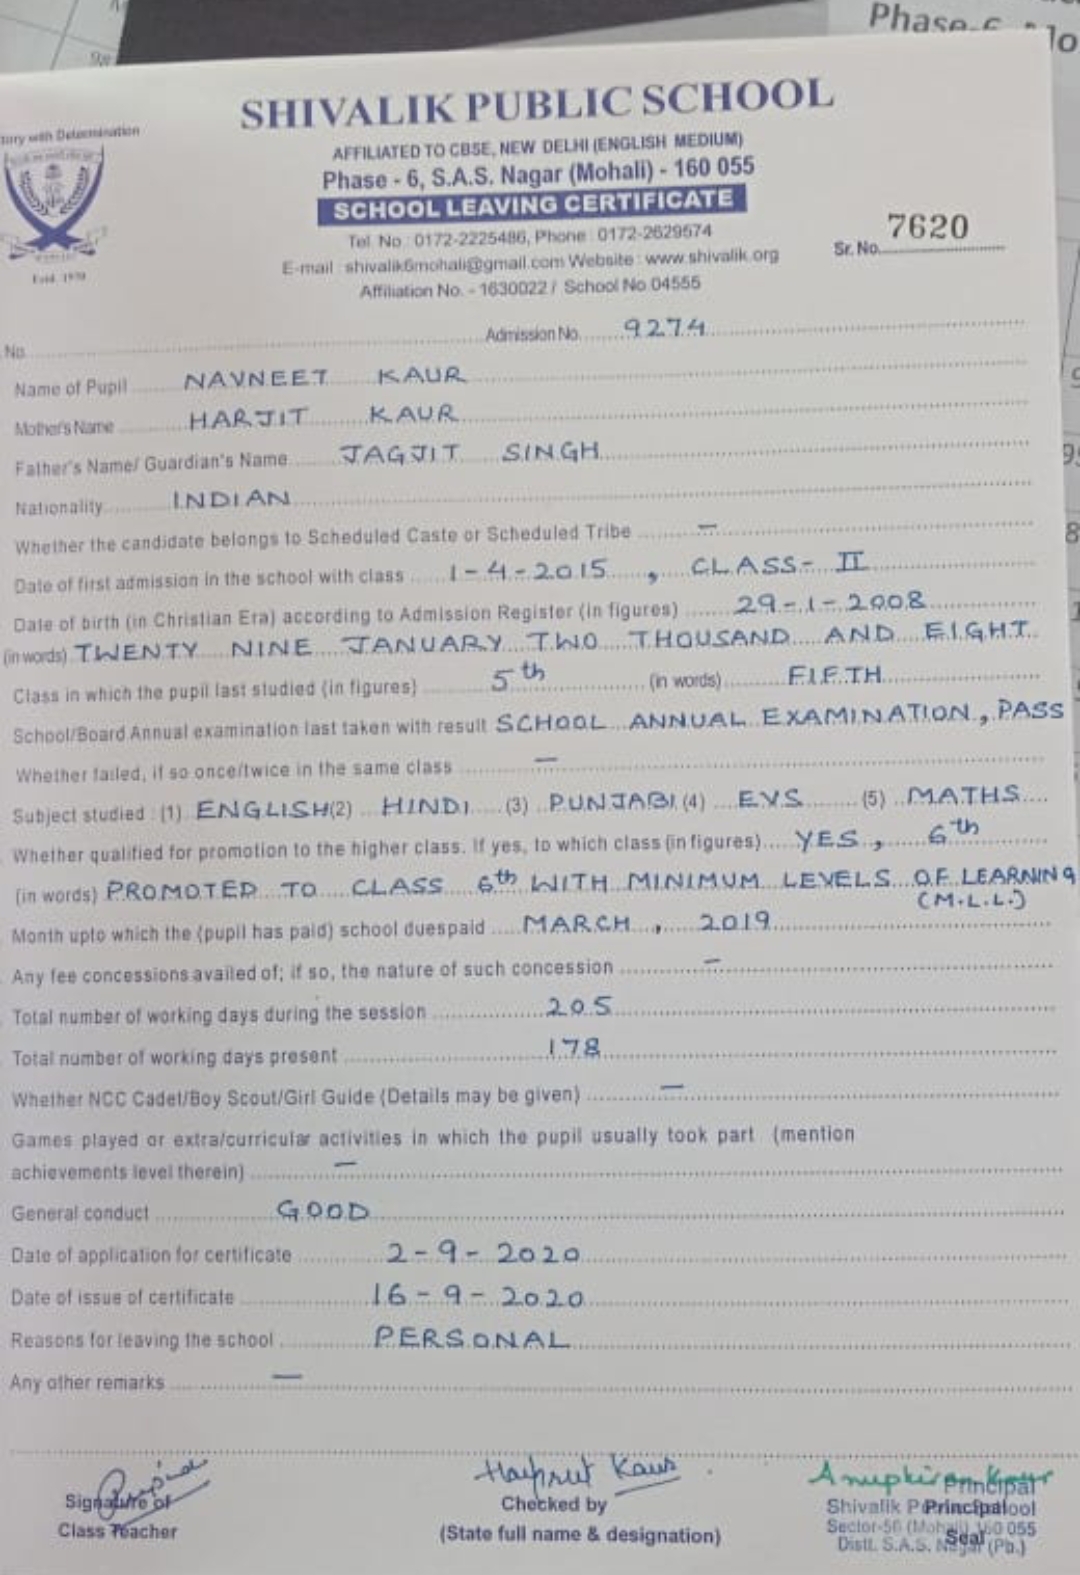 Phase-6
SHIVALIK PUBLIC SCHOOL
with Determination
AFFILIATED TO CBSE, NEW DELHI (ENGLISH MEDIUM)
Phase - 6, S.A.S. Nagar (Mohali) - 160 055
SCHOOL LEAVING CERTIFICATE
Tel. No : 0172-2225486, Phone : 0172-2629574
Sr. No. 7620
E-mail : shivalik6mohali@gmail.com Website : www.shivalik.org
Affiliation No. - 1630022 / School No.04555
Admission No. 9274
No.
Name of Pupil NAVNEET KAUR
Mother's Name HARJIT KAUR
Father's Name/ Guardian's Name JAGJIT SINGH
Nationality INDIAN
Whether the candidate belongs to Scheduled Caste or Scheduled Tribe —
Date of first admission in the school with class 1-4-2015, CLASS- II
Date of birth (in Christian Era) according to Admission Register (in figures) 29-1-2008
(in words) TWENTY NINE JANUARY TWO THOUSAND AND EIGHT
Class in which the pupil last studied (in figures) 5th (in words) FIFTH
School/Board Annual examination last taken with result SCHOOL ANNUAL EXAMINATION, PASS
Whether failed, if so once/twice in the same class —
Subject studied : (1) ENGLISH (2) HINDI (3) PUNJABI (4) EVS (5) MATHS
Whether qualified for promotion to the higher class. If yes, to which class (in figures) YES, 6th
(in words) PROMOTED TO CLASS 6th WITH MINIMUM LEVELS OF LEARNING
(M.L.L.)
Month upto which the (pupil has paid) school duespaid MARCH, 2019
Any fee concessions availed of; if so, the nature of such concession —
Total number of working days during the session 205
Total number of working days present 178
Whether NCC Cadet/Boy Scout/Girl Guide (Details may be given) —
Games played or extra/curricular activities in which the pupil usually took part (mention
achievements level therein) —
General conduct GOOD
Date of application for certificate 2-9-2020
Date of issue of certificate 16-9-2020
Reasons for leaving the school PERSONAL
Any other remarks —
Harpreet Kaur
Anupkiran Kaur
Signature of
Class Teacher
Checked by
(State full name & designation)
Principal
Principal
Shivalik
Sector-56 (Mohali) 160 055
Seal
Distt. S.A.S. Nagar (Pb.)